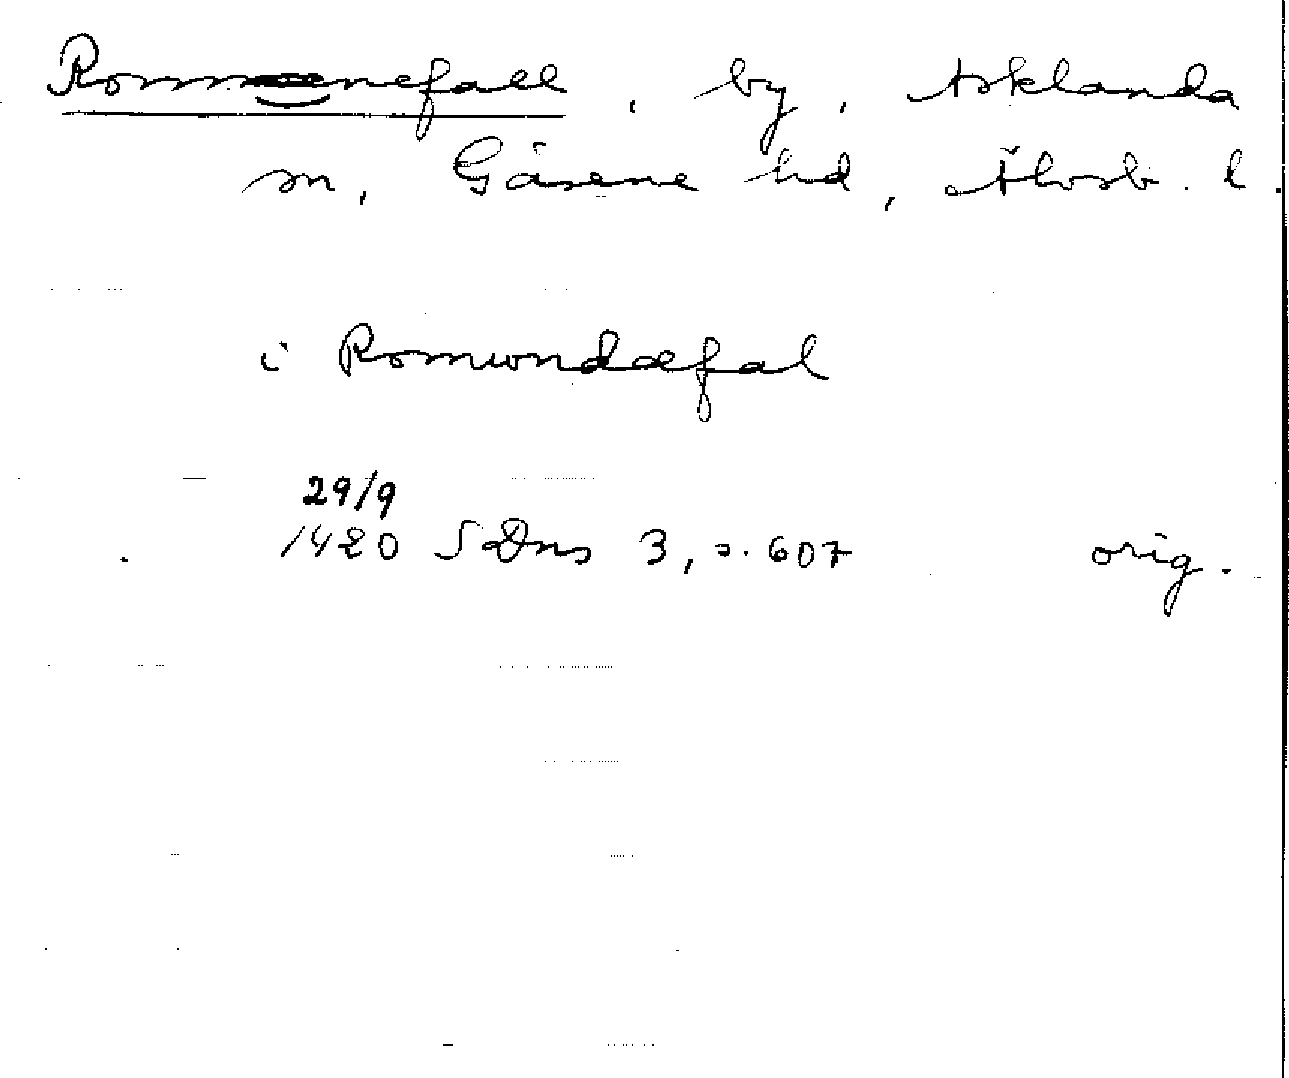 Rommenefall, by, Asklanda
sn, Gäsene hd, Älvsb. l.
i Romundæfal
29/9
1420 SDns 3, s. 607 orig.